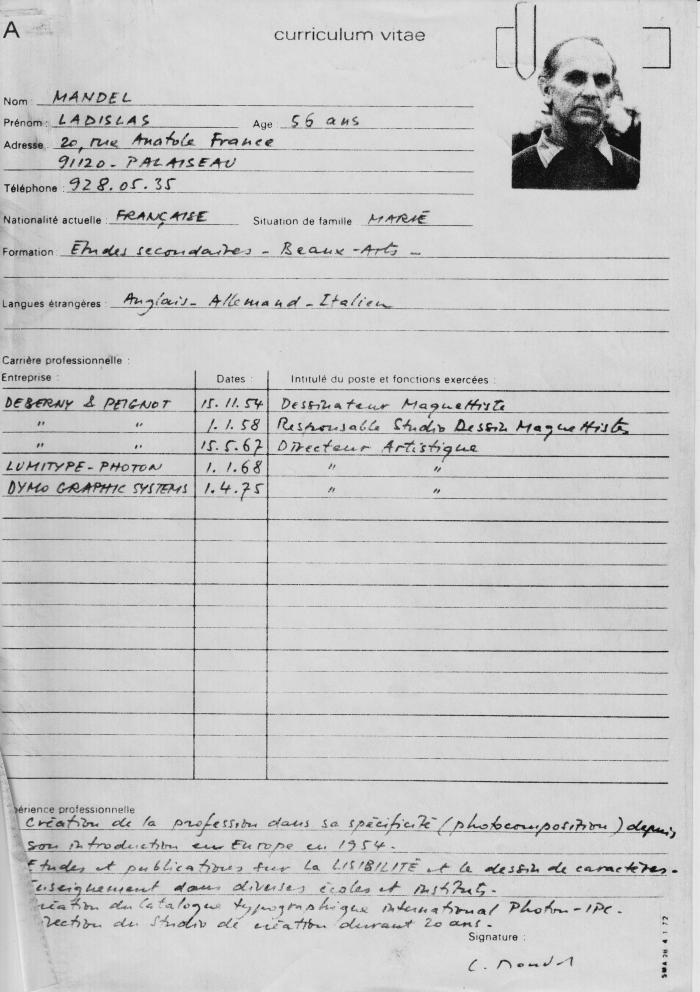 A
curriculum vitae
Nom : MANDEL
Prénom : LADISLAS Age 56 ans
Adresse 20, rue Anatole France
91120 - PALAISEAU
Téléphone : 928.05.35
Nationalité actuelle : FRANÇAISE Situation de famille MARIÉ
Formation : Etudes secondaires - Beaux-Arts -
Langues étrangères : Anglais - Allemand - Italien
Carrière professionnelle :
Entreprise : Dates : Intitulé du poste et fonctions exercées :
DEBERNY & PEIGNOT 15.11.54 Dessinateur Maquettiste
" " 1.1.58 Responsable Studio Dessin Maquettiste
" " 15.5.67 Directeur Artistique
LUMITYPE-PHOTON 1.1.68 " "
DYMO GRAPHIC SYSTEMS 1.4.75 " "
périence professionnelle
Création de la profession dans sa spécificité (photocomposition) depuis
son introduction en Europe en 1954.
Etudes et publications sur la LISIBILITÉ et le dessin de caractères.
Enseignement dans diverses écoles et instituts.
réation du Catalogue typographique international Photon-IPC.
irection du Studio de création durant 20 ans.
Signature :
L. Mandel